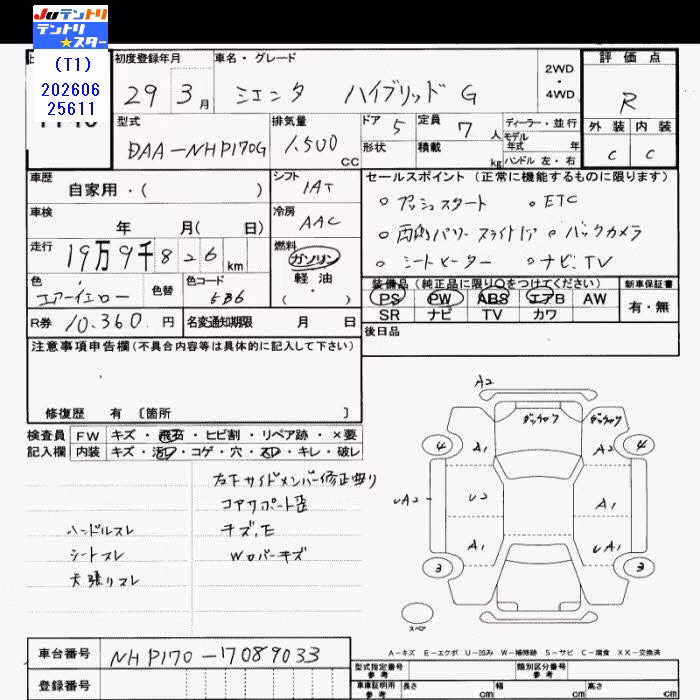 JUテントリ
テントリ★スター
(T1)
202606
25611
初度登録年月
29 3月
車名・グレード
シエンタ ハイブリッド G
2WD・4WD
評価点
R
外装 内装
C C
型式
DAA-NHP170G
排気量
1,500 CC
ドア 5
形状
定員 7人
積載 kg
ディーラー・並行
モデル年式 年
ハンドル 左・右
車歴
自家用・( )
シフト
IAT
車検
年 月( 日)
冷房
AAC
走行
19万9千826 km
燃料
ガソリン
軽油
( ・ )
色
エアーイエロー
色替
色コード
5B6
R券 10,360 円
名変通知期限 月 日
セールスポイント (正常に機能するものに限ります)
○ プッシュスタート ○ ETC
○ 両側パワースライドドア ○ バックカメラ
○ シートヒーター ○ ナビ、TV
装備品 (純正品に限り○をつけてください)
新車保証書
PS PW ABS エアB AW
有・無
SR ナビ TV カワ
後日品
注意事項申告欄(不具合内容等は具体的に記入して下さい)
修復歴 有 〔箇所 〕
検査員 FW キズ・飛石・ヒビ割・リペア跡・×要
記入欄 内装 キズ・汚レ・コゲ・穴・スレ・キレ・破レ
右下サイドメンバー修正曲リ
コアサポート歪
キズ、E
Wロバーキズ
ハンドルスレ
シートスレ
天張リスレ
A2
ダッシュク ダッシュク
4 A1 A2 4
UA2 U2 A1
3 A1 UA1 3
スペア
A-キズ E-エクボ U-凹み W-補修跡 S-サビ C-腐食 XX-交換済
車台番号 NHP170-17089033
登録番号
型式指定番号 参考
類別区分番号 参考
車庫証明用 参考 長さ cm 幅 cm 高さ cm